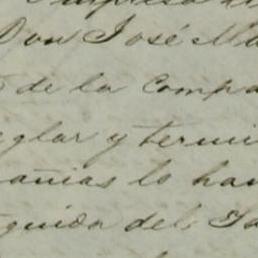 Don José Ma
de la Compa
glar y termi
añias lo han
guido del